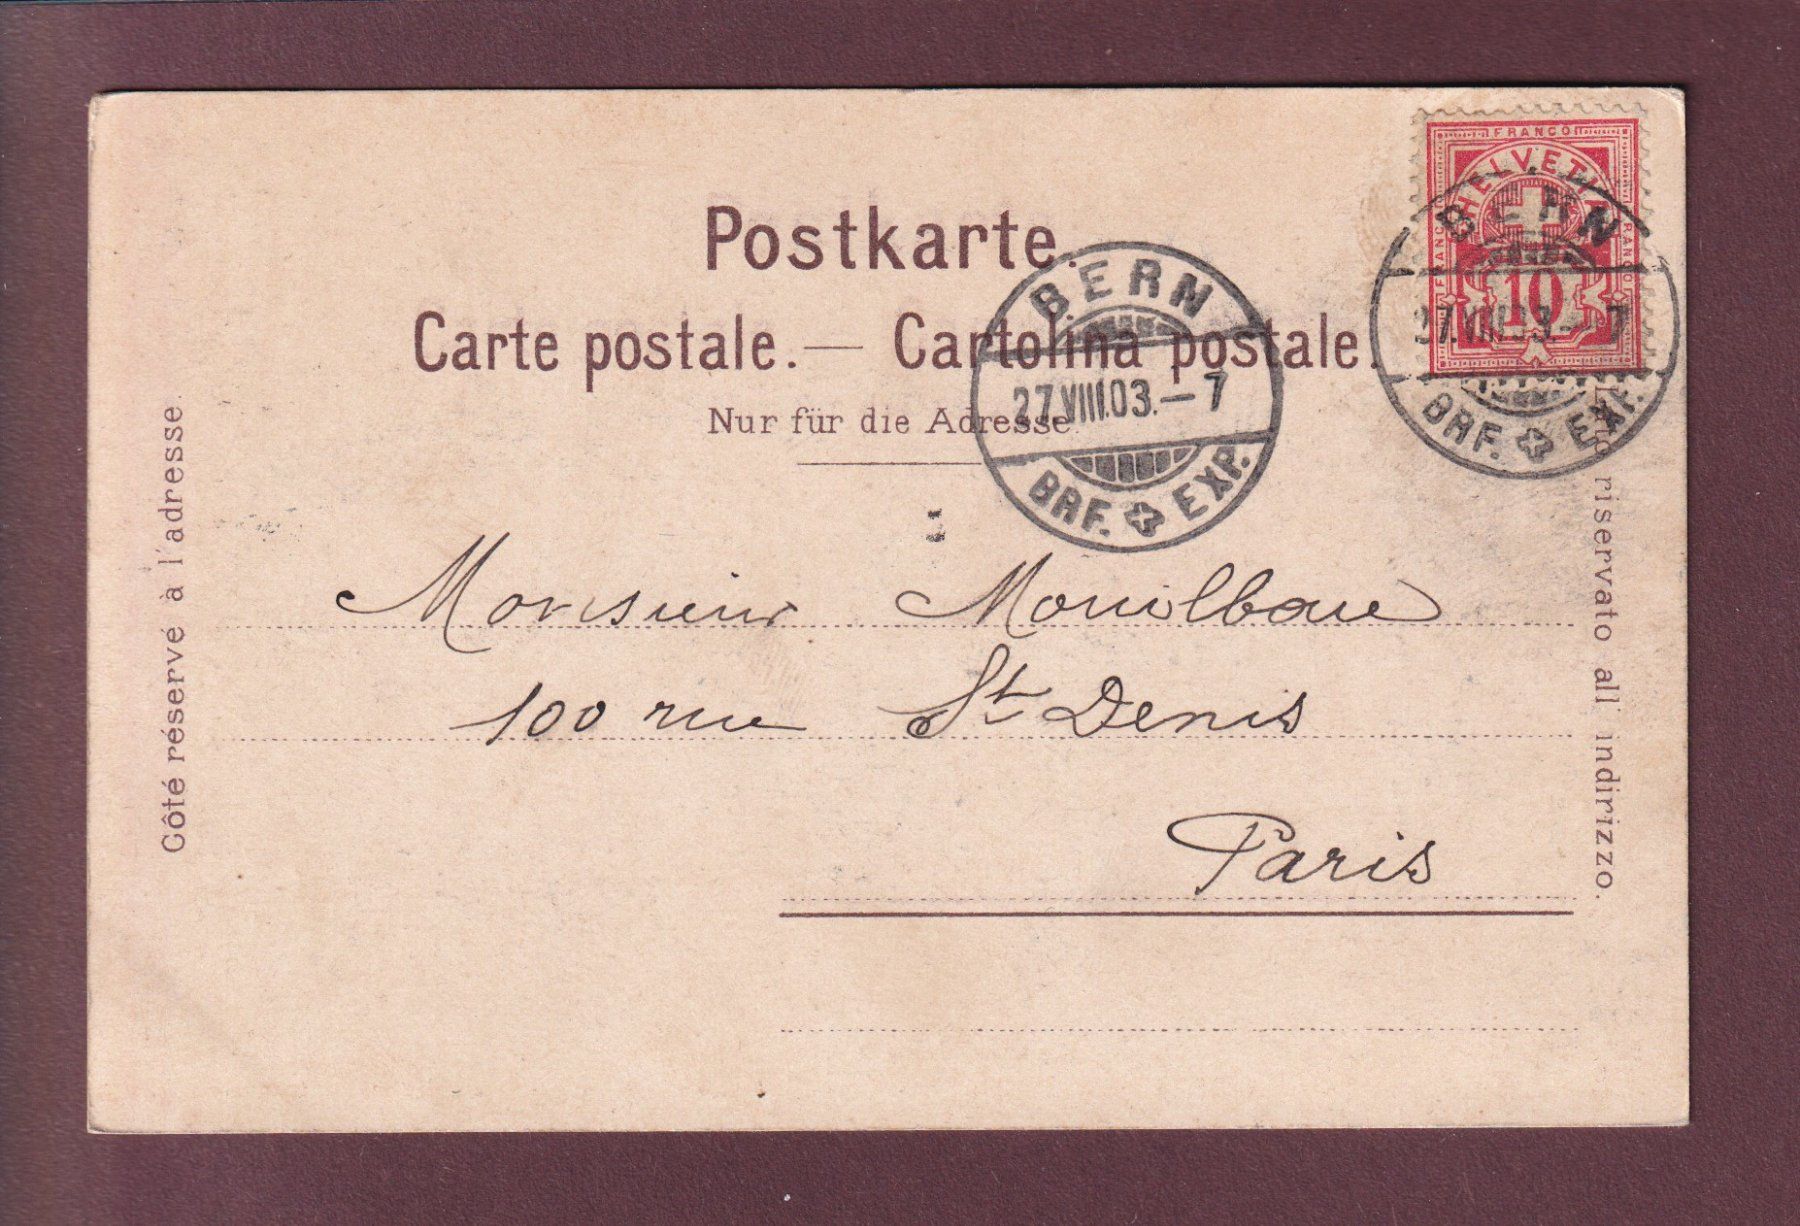 FRANCO
HELVETIA
FRANCO
FRANCO
10
BERN
27.VIII.03.—7
BRF. EXP.
Postkarte.
Carte postale.— Cartolina postale.
Nur für die Adresse.
BERN
27.VIII.03.—7
BRF. EXP.
Côté réservé à l'adresse.
riservato all indirizzo.
Monsieur Mouilbaue
100 rue St Denis
Paris